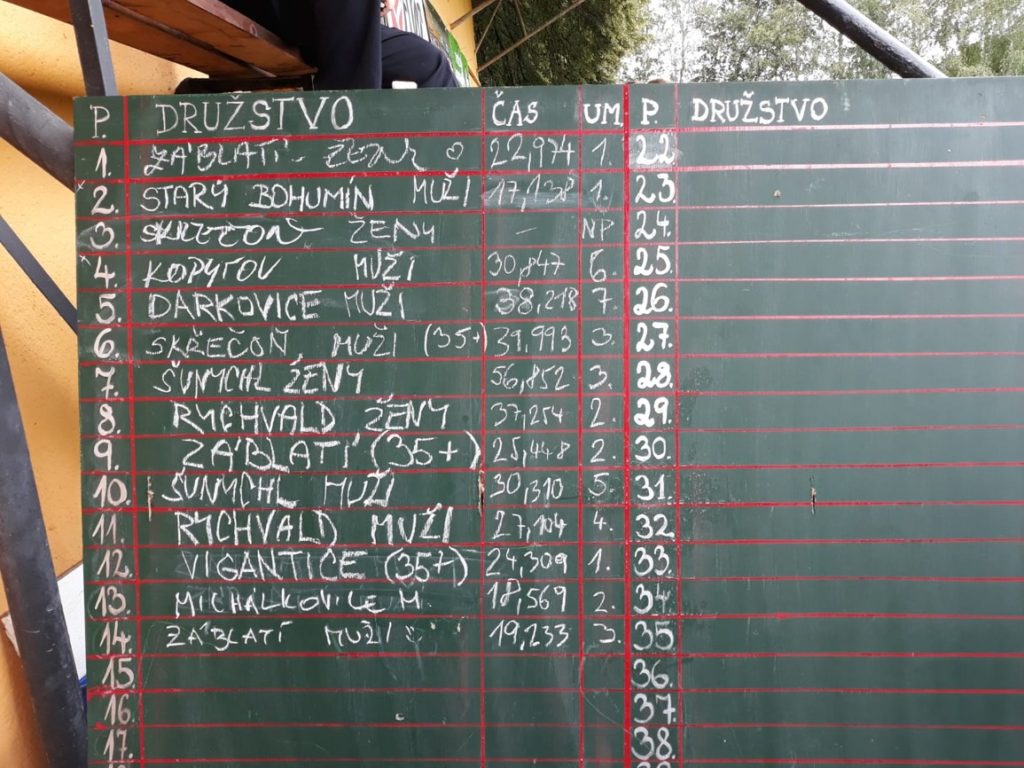 P. DRUŽSTVO ČAS UM. P. DRUŽSTVO
1. ZÁBLATÍ - ŽENY ♡ 22,974 1. 22
2. STARÝ BOHUMÍN MUŽI 17,138 1. 23.
3. SKŘEČOŇ ŽENY - NP 24.
4. KOPYTOV MUŽI 30,847 6. 25.
5. DARKOVICE MUŽI 38,218 7. 26.
6. SKŘEČOŇ MUŽI (35+) 39,993 3. 27.
7. ŠUNYCHL ŽENY 56,852 3. 28.
8. RYCHVALD ŽENY 37,254 2. 29.
9. ZÁBLATÍ (35+) 25,448 2. 30.
10. ŠUNYCHL MUŽI 30,310 5. 31.
11. RYCHVALD MUŽI 27,104 4. 32
12. VIGANTICE (35+) 24,309 1. 33.
13. MICHALKOVICE M. 18,569 2. 34.
14. ZÁBLATÍ MUŽI 19,233 3. 35.
15. 36.
16. 37.
17. 38.